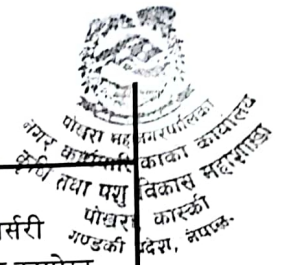 पोखरा महानगरपालिका
नगर कार्यपालिकाको कार्यालय
कृषि तथा पशु विकास महाशाखा
पोखरा कास्की
गण्डकी प्रदेश, नेपाल.
र्सरी